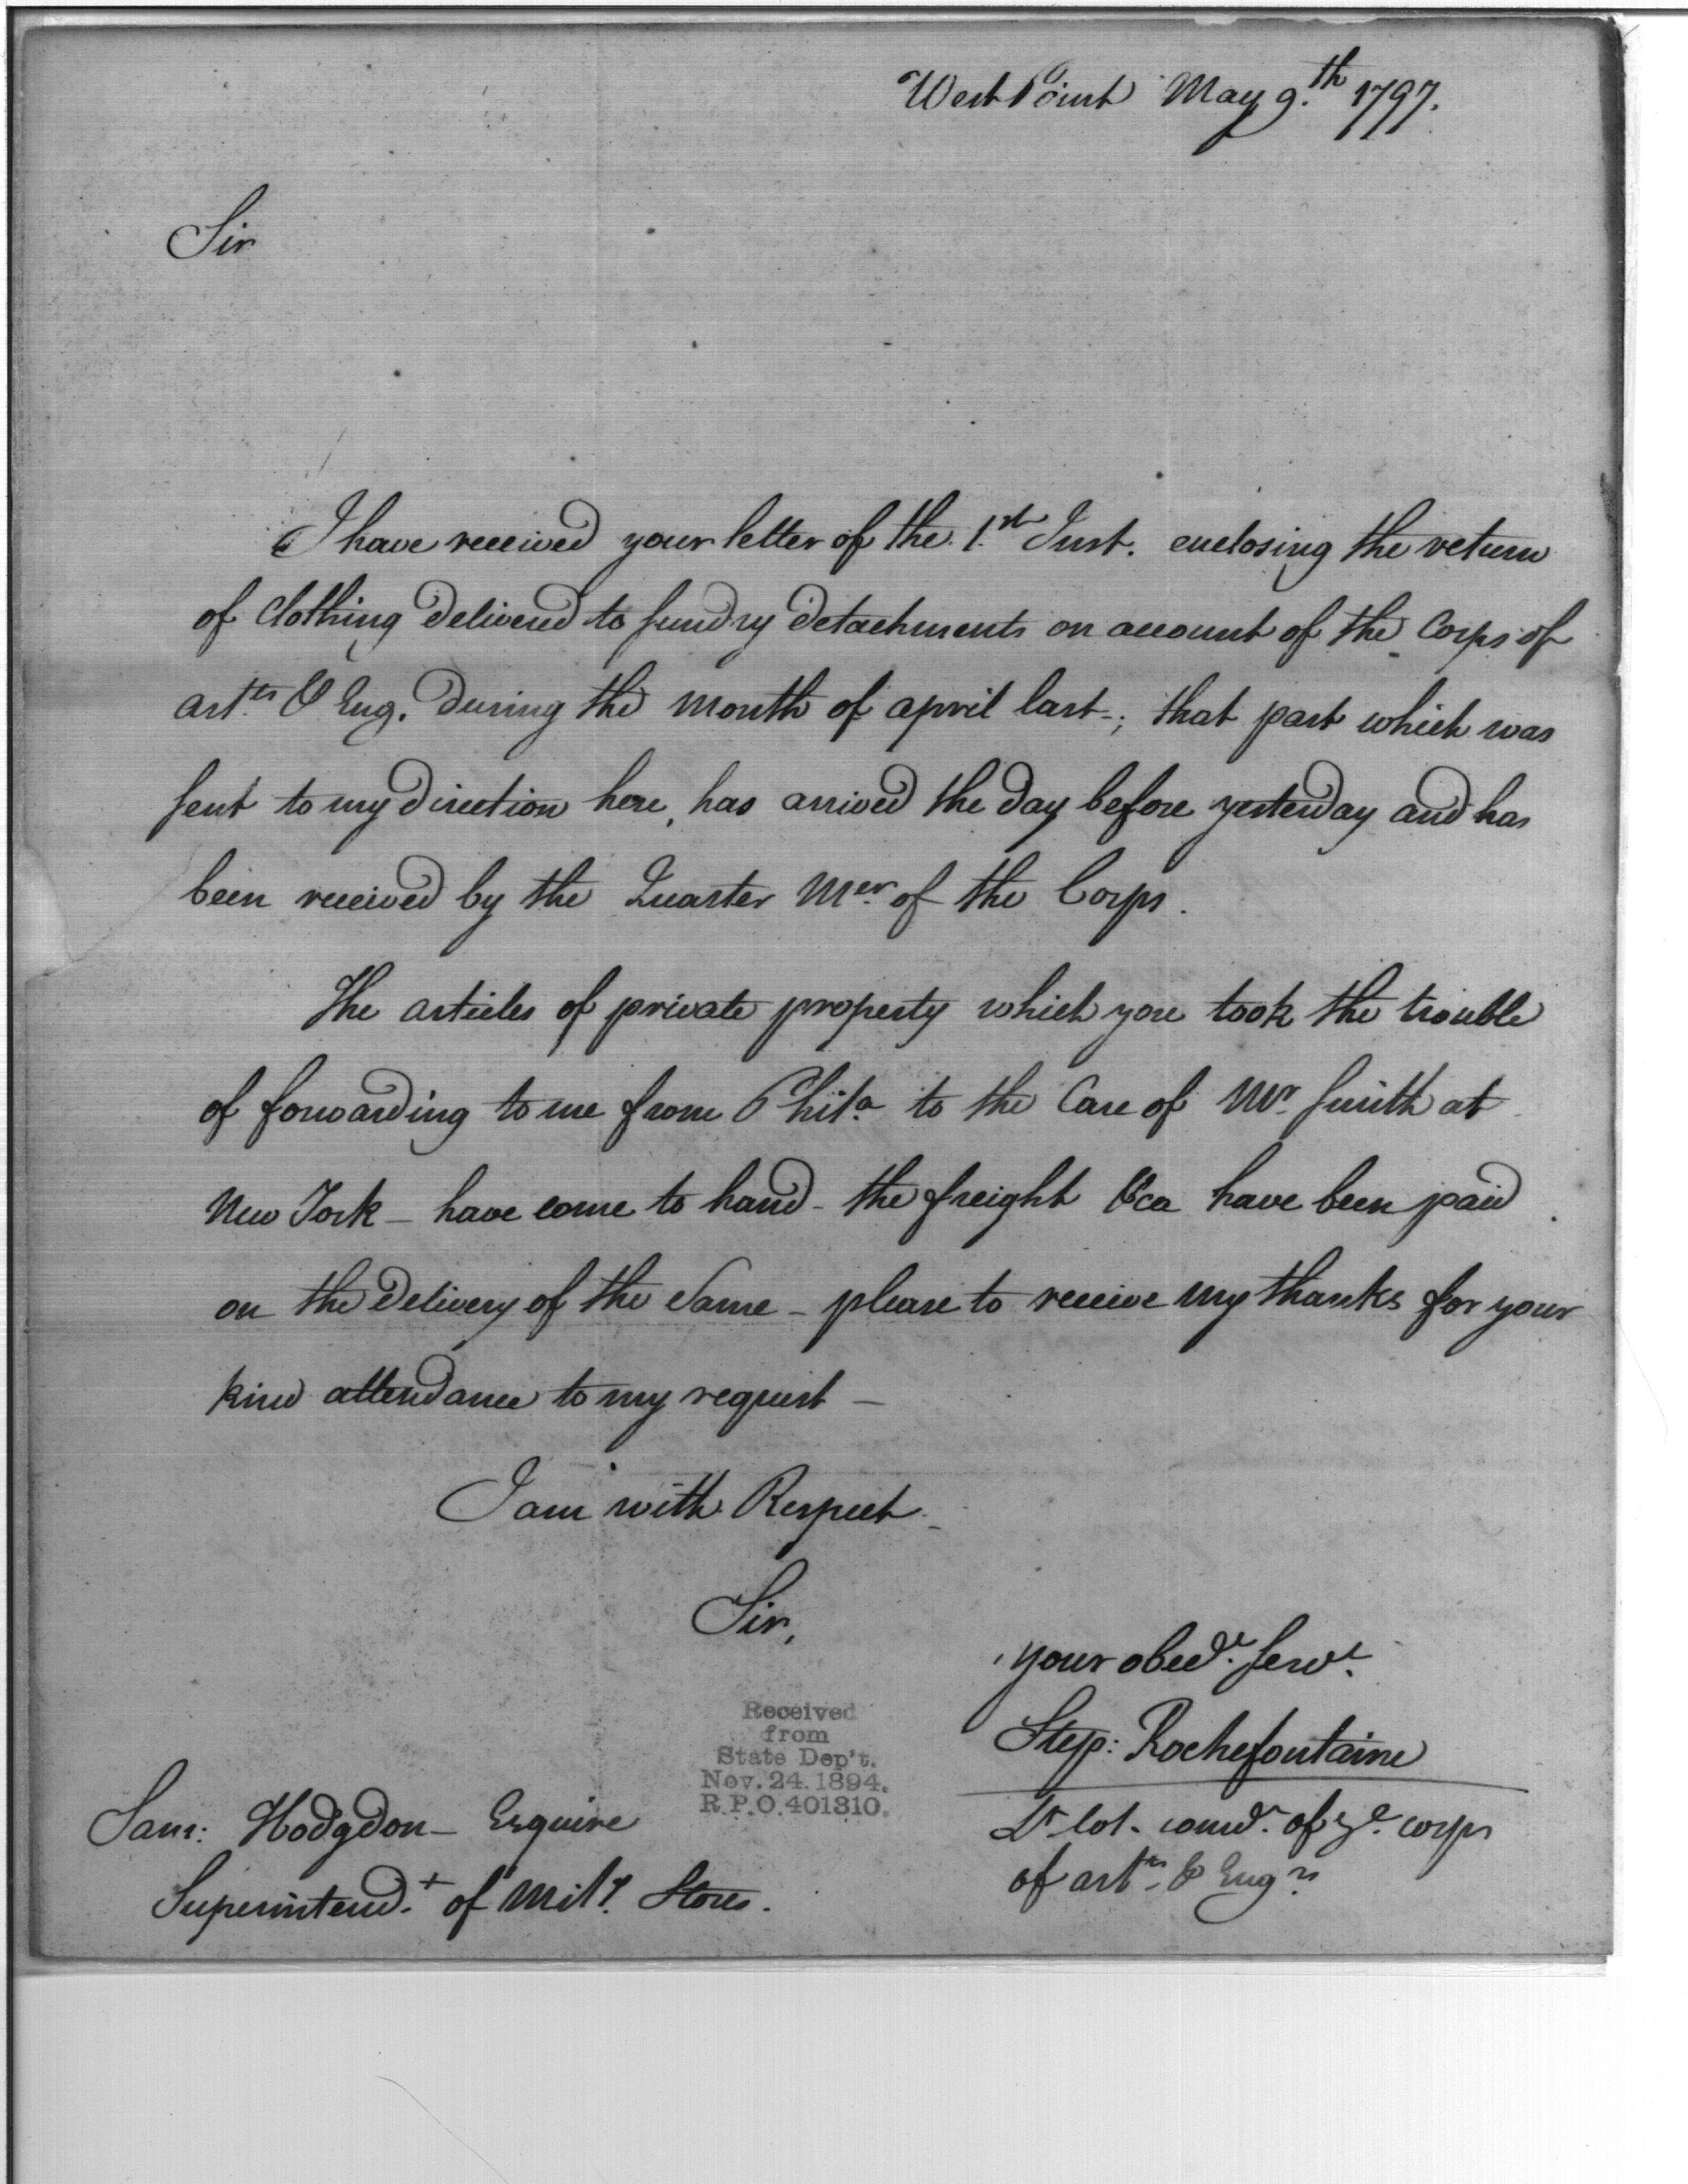 West Point May 9.th 1797.
Sir
I have received your letter of the 1.st Inst. enclosing the return
of Clothing delivered to sundry detachments on account of the Corps of
art.rs & Eng. during the month of april last-; that part which was
sent to my direction here, has arrived the day before yesterday and has
been received by the Quarter Mer. of the Corps.
The articles of private property which you took the trouble
of forwarding to me from Phila. to the Care of Mr. Smith at
New York - have come to hand - the freight &ca have been paid
on the delivery of the Same - please to receive my thanks for your
kind attendance to my request -
I am with Respect -
Sir,
your obedt. servt.
Step: Rochefontaine
Lt Col. comdt. of ye. corps
of artrs. & Engrs
Received
from
State Dep't.
Nov. 24. 1894.
R.P.O. 401310.
Sam: Hodgdon - Esquire
Superintend.t of Mily. Stores.